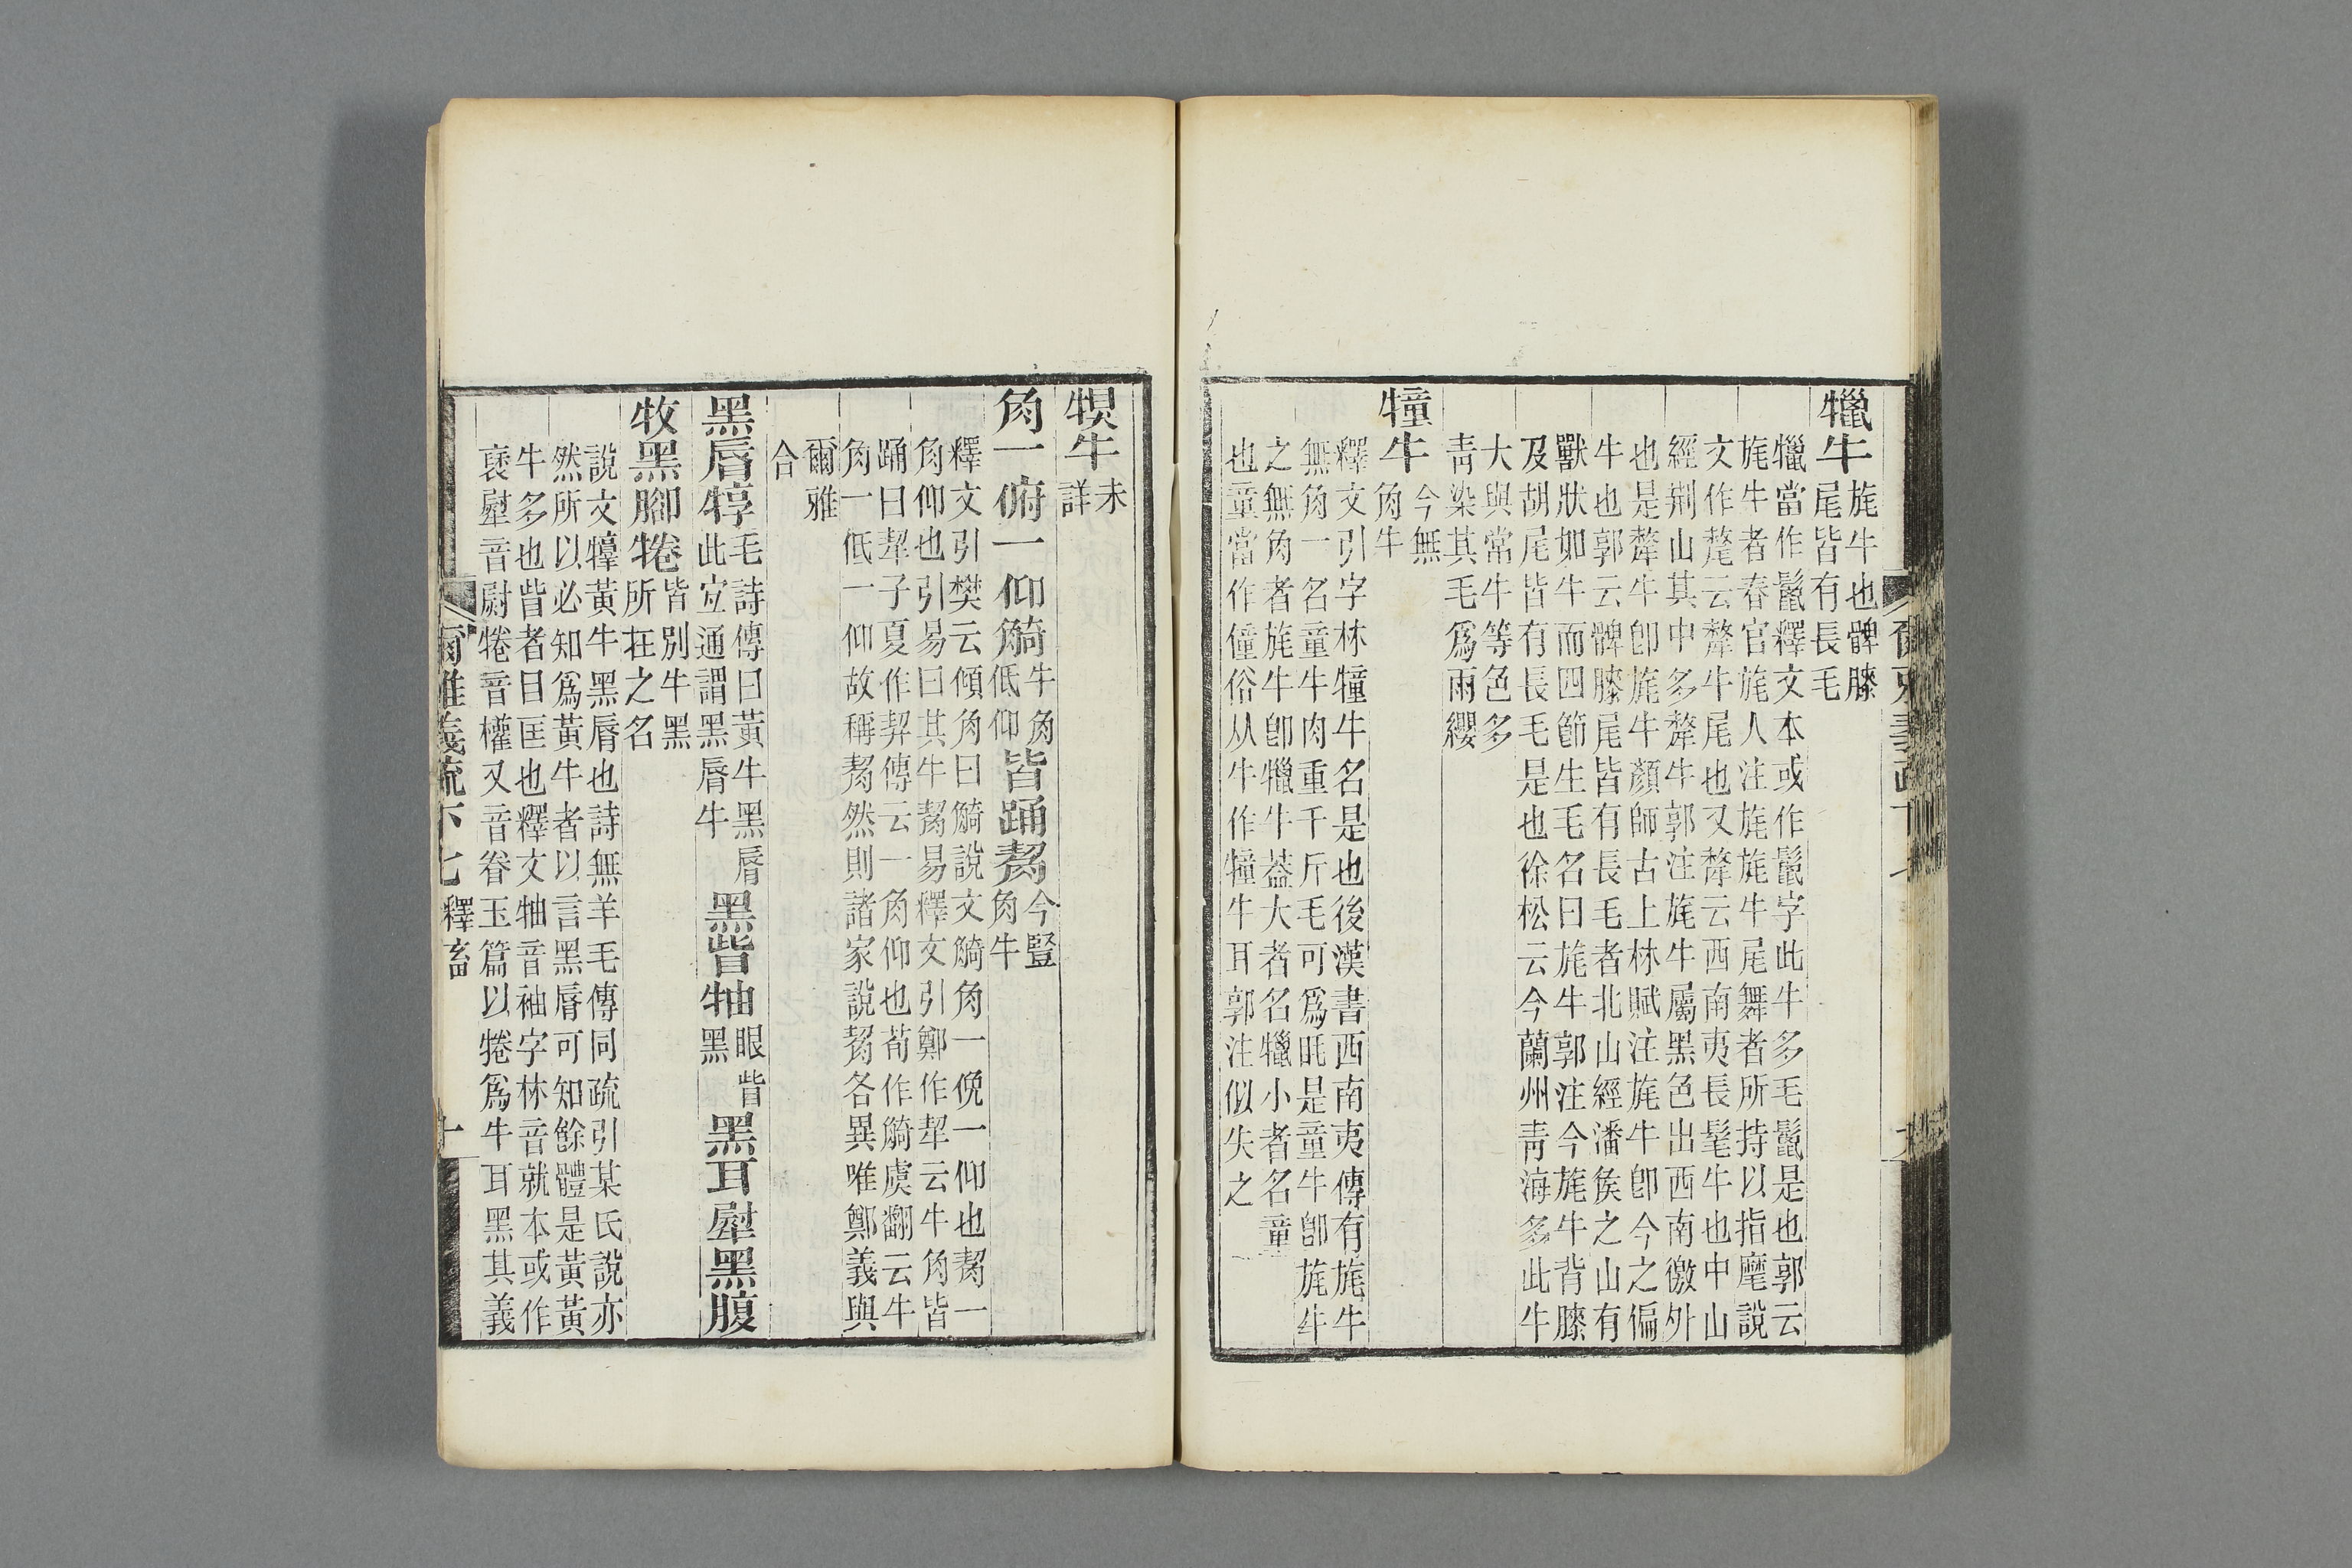 犣牛旄牛也髀膝尾皆有長毛
犣當作鬣釋文本或作鬣字此牛多毛鬣是也郭云
旄牛者春官旄人注旄旄牛尾舞者所持以指麾說
文作氂云犛牛尾也又犛云西南夷長髦牛也中山
經荆山其中多犛牛郭注旄牛屬黑色出西南徼外
也是犛牛卽旄牛顏師古上林賦注旄牛卽今之偏
牛也郭云髀膝尾皆有長毛者北山經潘侯之山有
獸狀如牛而四節生毛名曰旄牛郭注今旄牛背膝
及胡尾皆有長毛是也徐松云今蘭州靑海多此牛
大與常牛等色多
靑染其毛爲雨纓
犝牛今無角牛
釋文引字林犝牛名是也後漢書西南夷傳有旄牛
無角一名童牛肉重千斤毛可爲毦是童牛卽旄牛
之無角者旄牛卽犣牛葢大者名犣小者名童
也童當作僮俗从牛作犝牛耳郭注似失之
犑牛未詳
角一俯一仰觭牛角低仰皆踊觢今豎角牛
釋文引樊云傾角曰觭說文觭角一俛一仰也觢一
角仰也引易曰其牛觢易釋文引鄭作犎云牛角皆
踊曰犎子夏作契傳云一角仰也荀作觭虞翻云牛
角一低一仰故稱觢然則諸家說觢各異唯鄭義與
爾雅
合
黑脣犉毛詩傳曰黃牛黑脣此宐通謂黑脣牛黑眥牰眼眥黑黑耳犚黑腹
牧黑腳犈皆別牛黑所在之名
說文犉黃牛黑脣也詩無羊毛傳同疏引某氏說亦
然所以必知爲黃牛者以言黑脣可知餘體是黃黃
牛多也眥者目匡也釋文牰音袖字林音就本或作
䙝犚音尉犈音權又音眷玉篇以犈爲牛耳黑其義
爾雅義疏下七 釋畜 十